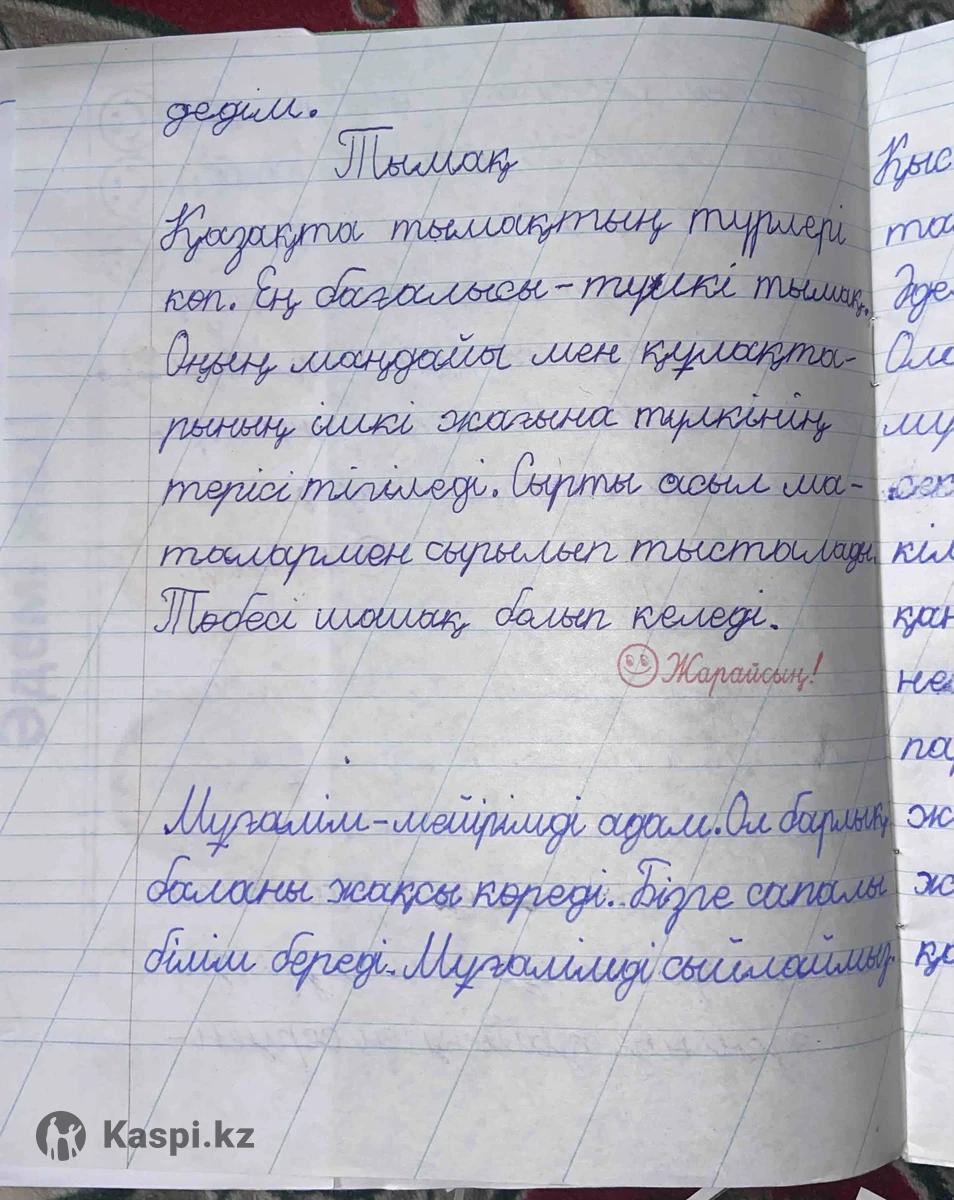 дедім.
Тымақ
Қазақта тымақтың түрлері
көп. Ең бағалысы - түлкі тымақ.
Оның маңдайы мен құлақта-
рының ішкі жағына түлкінің
терісі тігіледі. Сырты асыл ма-
талармен сырылып тысталады.
Төбесі шошақ болып келеді.
Жарайсың!
Мұғалім - мейірімді адам. Ол барлық
баланы жақсы көреді. Бізге сапалы
білім береді. Мұғалімді сыйлаймыз.
Kaspi.kz